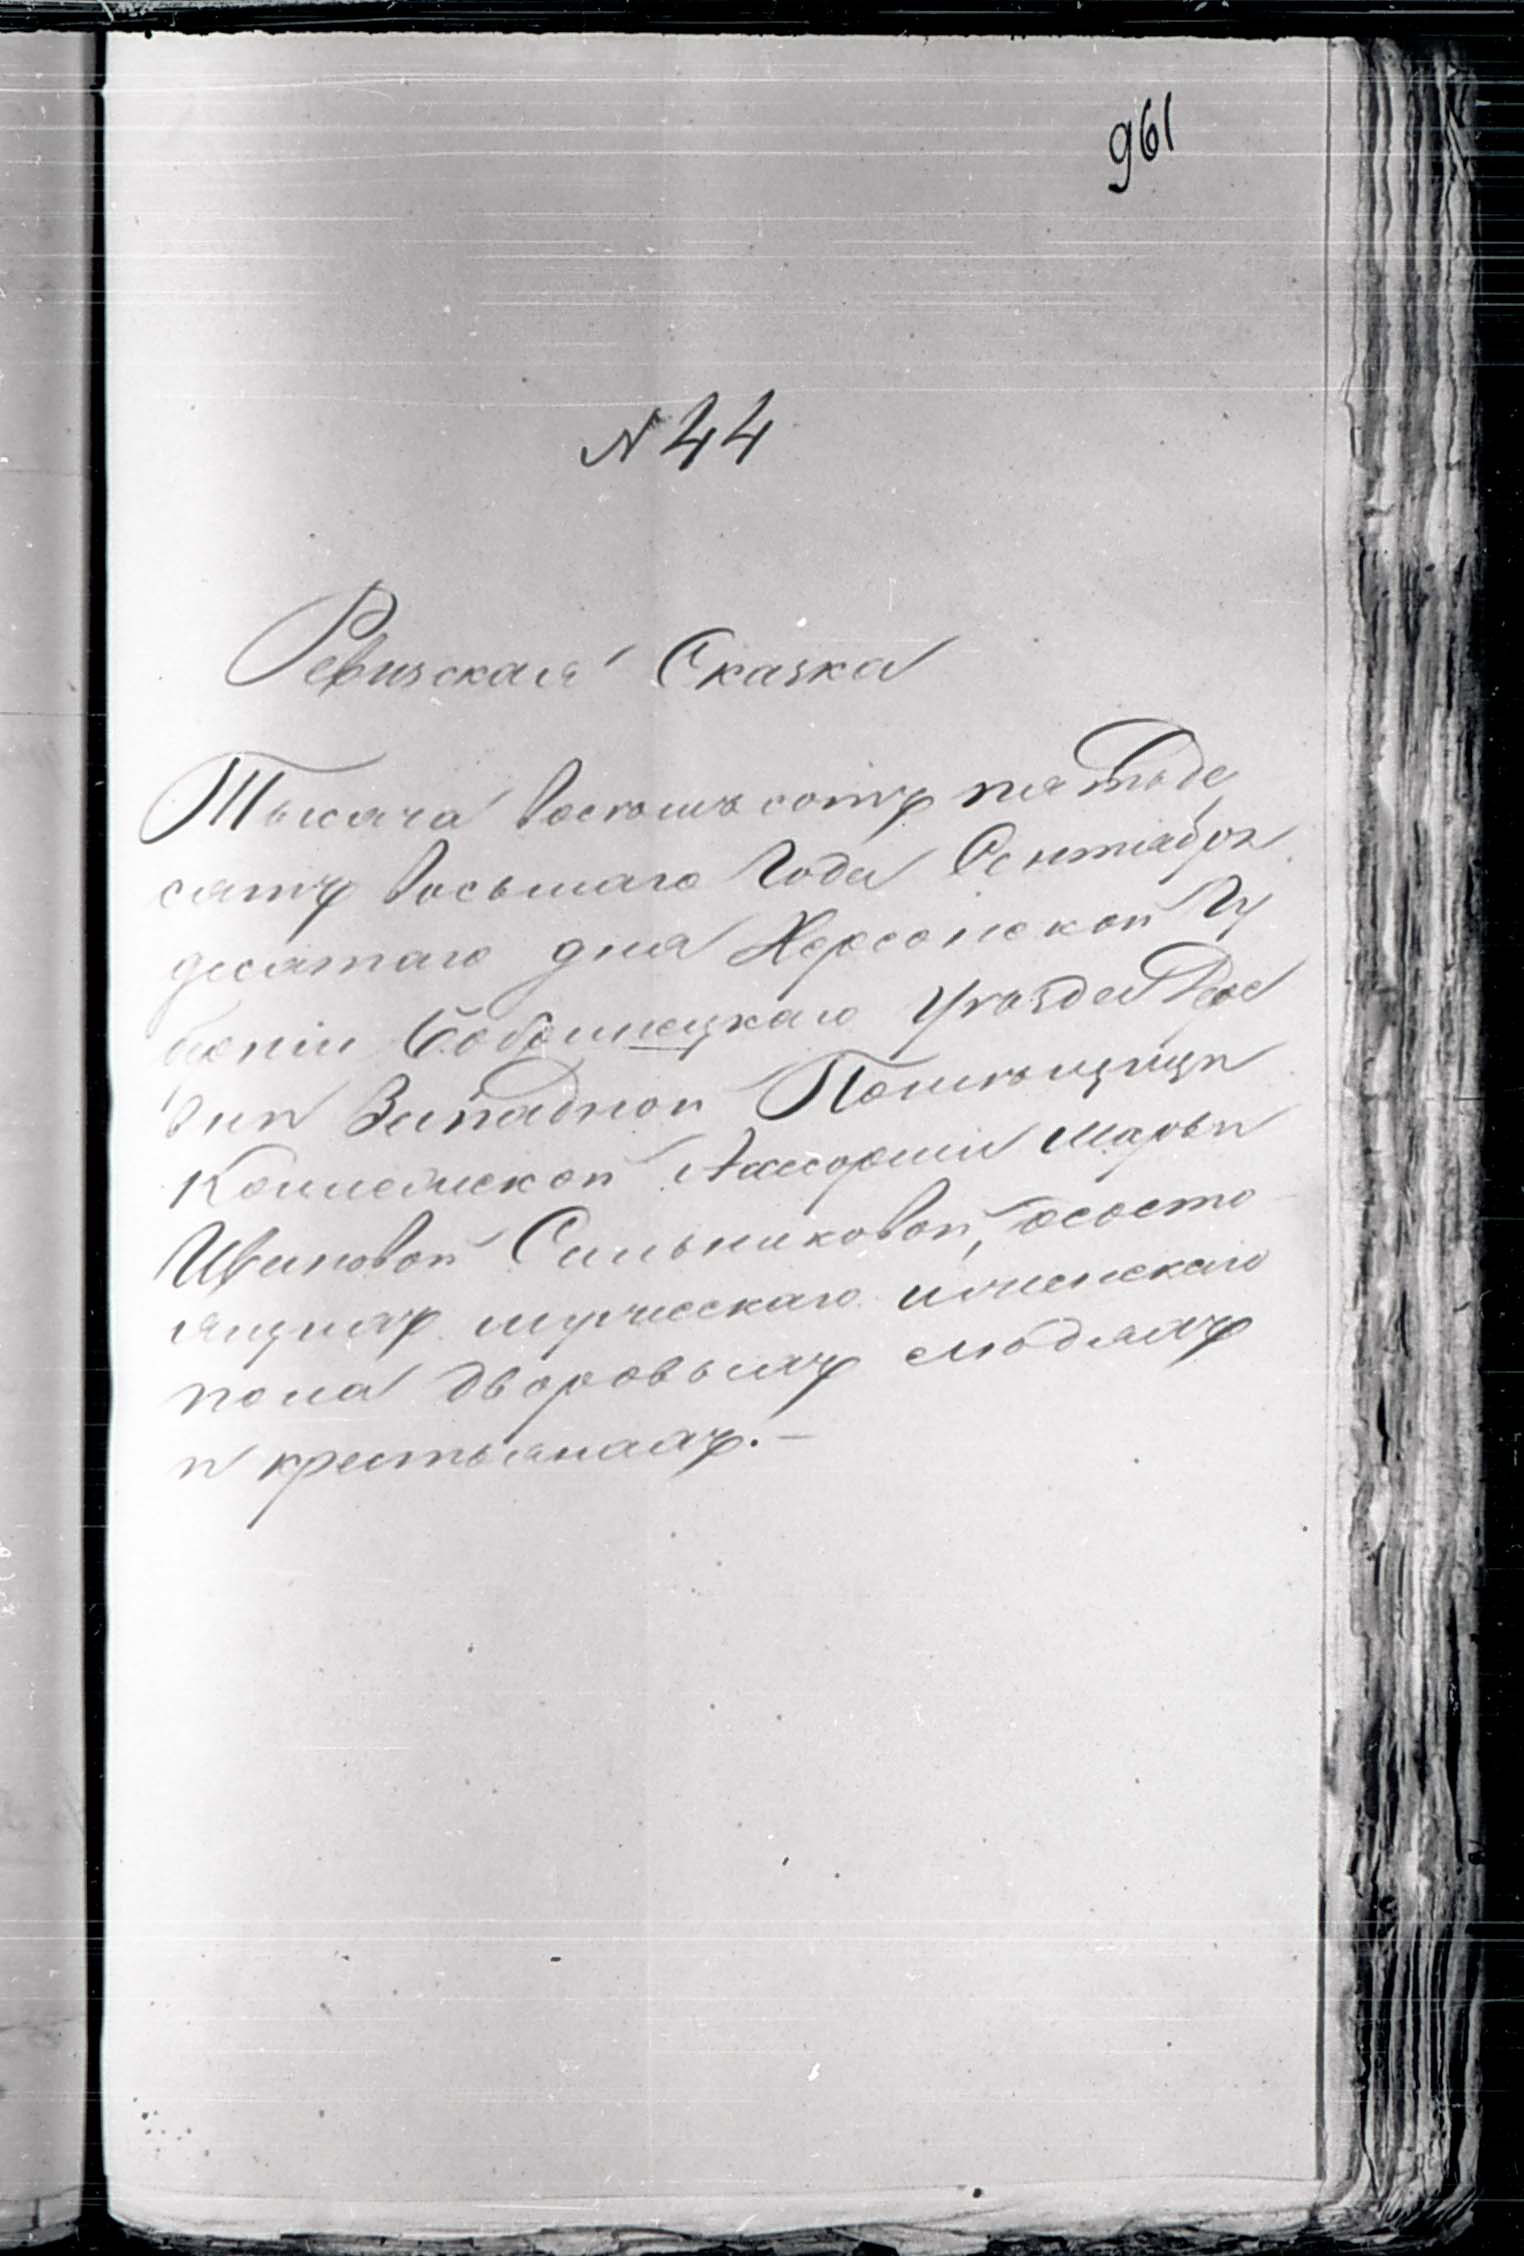 961
N 44
Ревизская Сказка
Тысяча восемь сотъ пятьде
сятъ восьмаго года Сентября
десятаго дня Херсонской Гу
берніи Бобринецкаго Уезда Дере
вни Западной Помещицы
Коллежской Ассорши Марьи
Ивановой Сальниковой, ососто
ящихъ мужескаго иженскаго
пола дворовыхъ людяхъ
и крестьянахъ. —